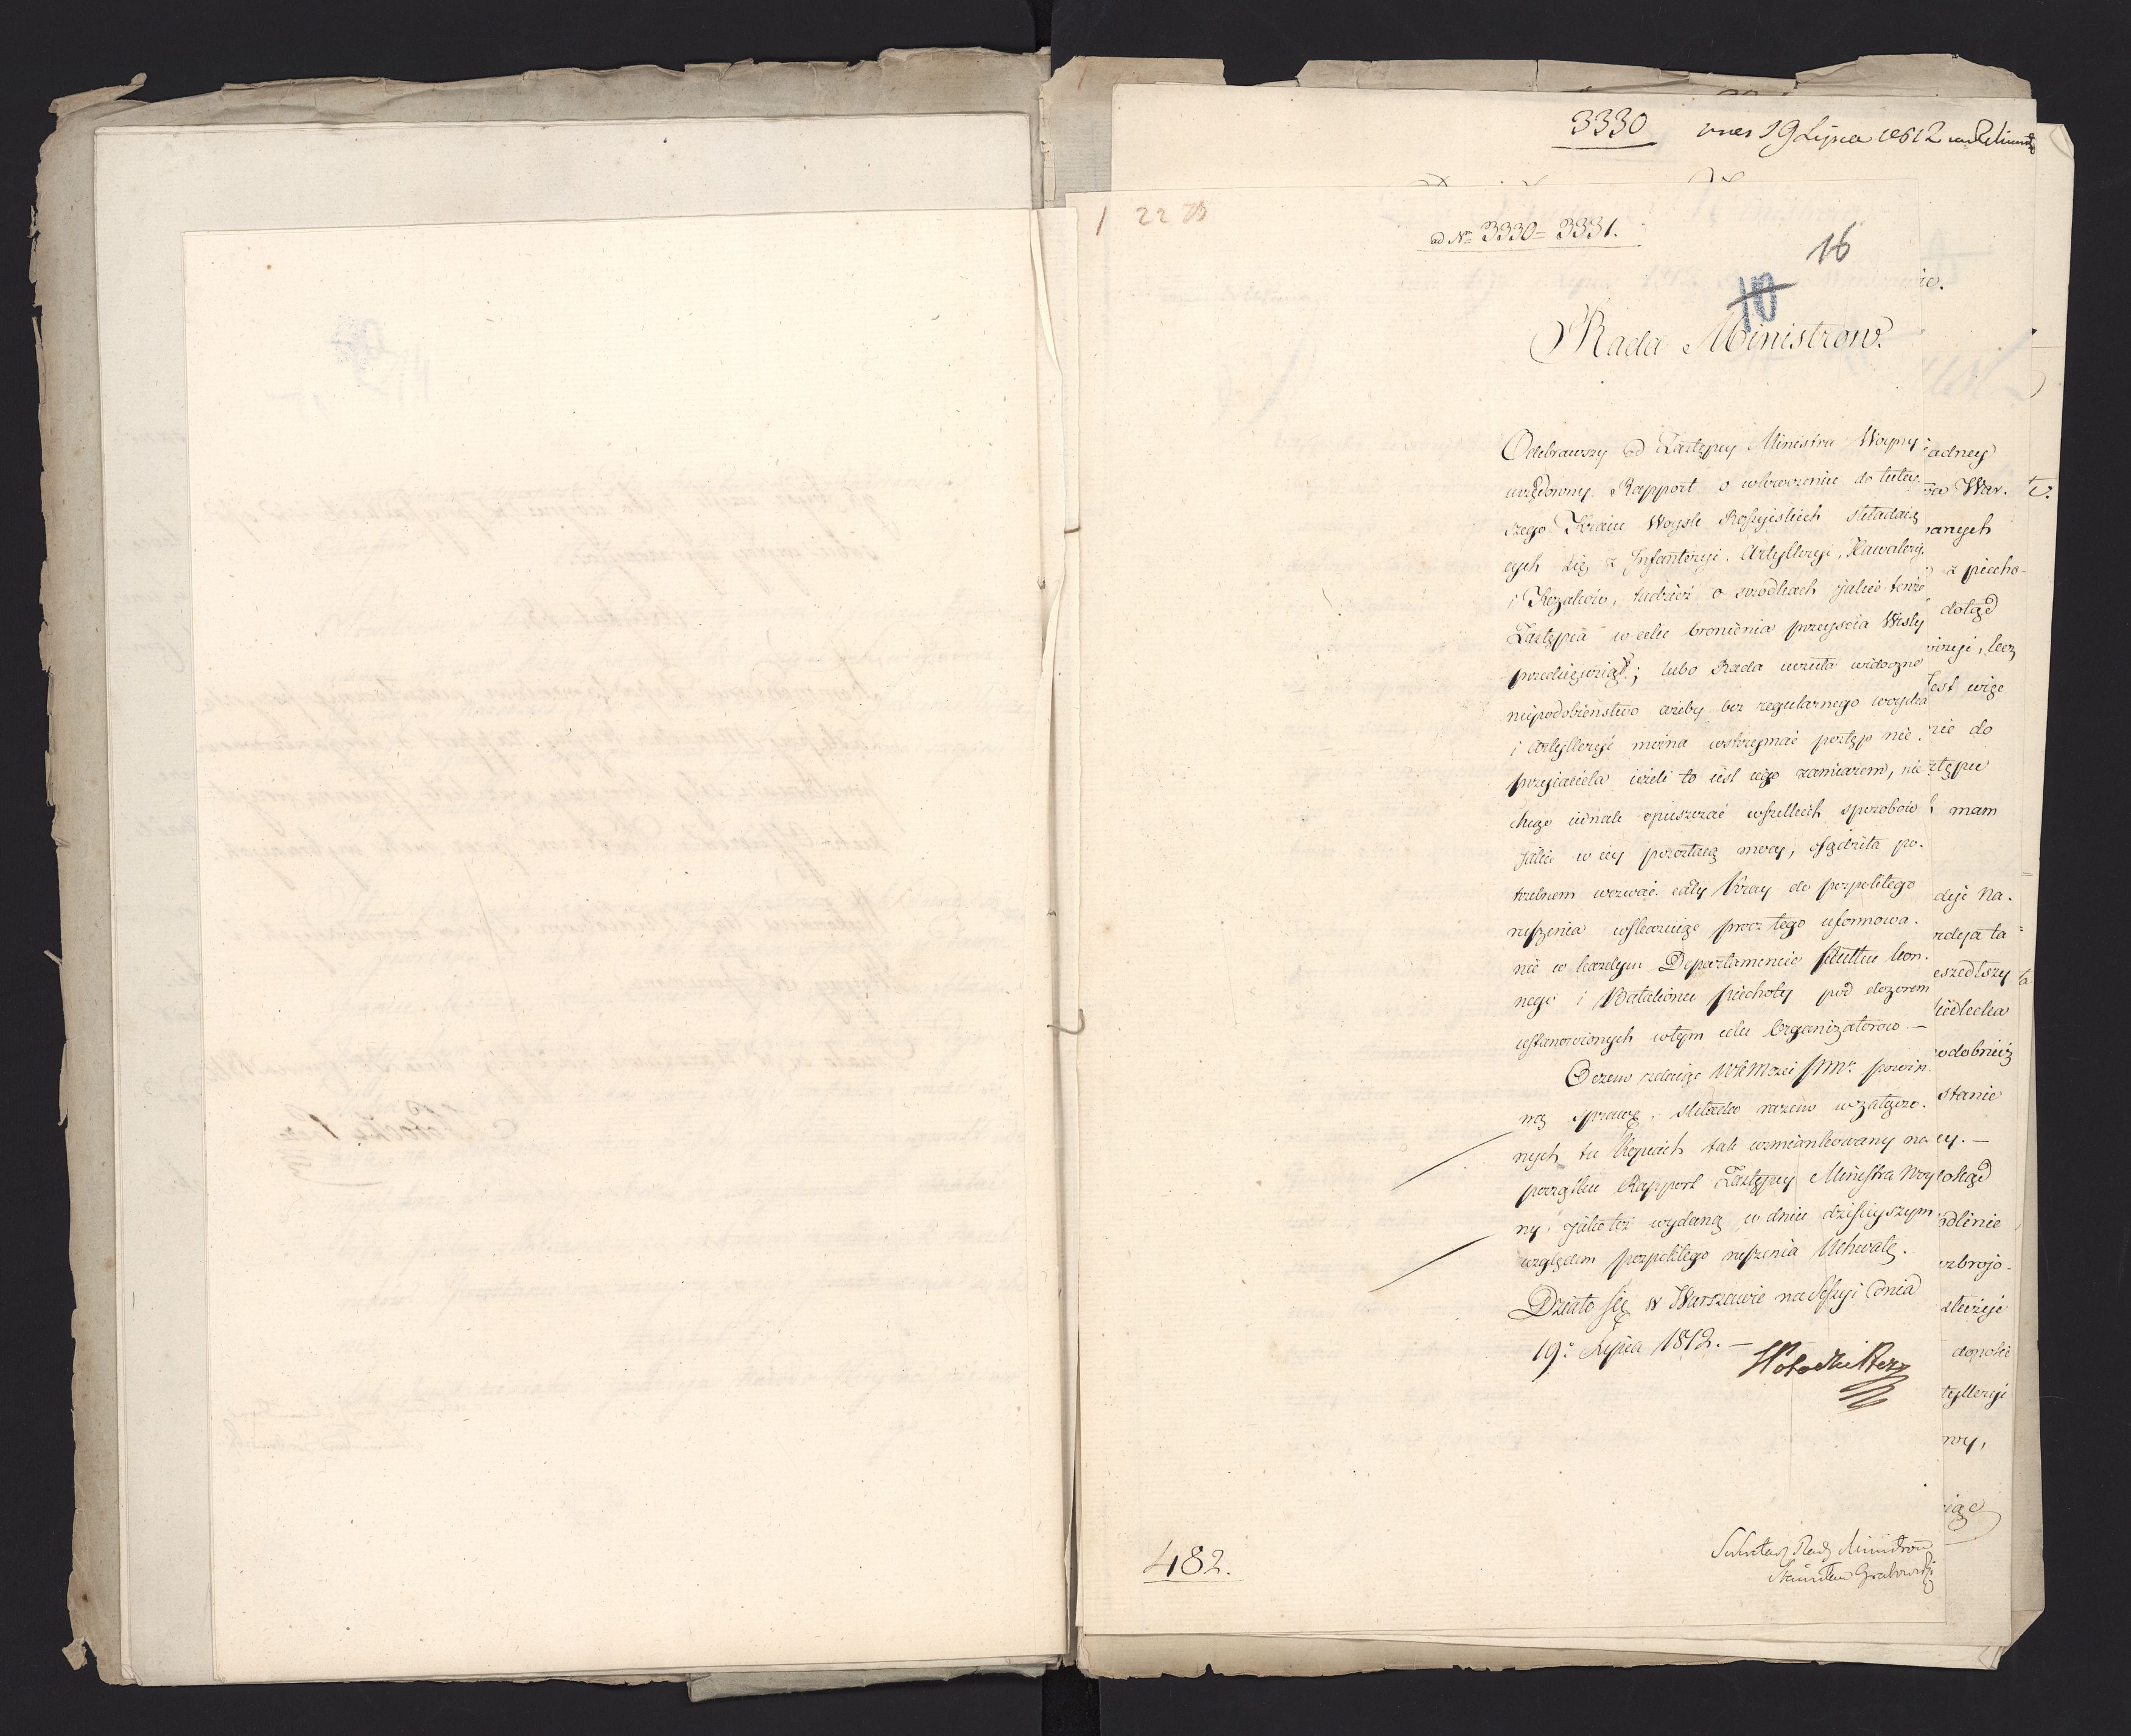 3330 19 Lipca 1812
1 22
ad Nr 3330 = 3331.
16
10
Rada Ministrow.
Odebrawszy od Zastępcy Ministra Woyny
urzędowny Rapport o wkroczeniu do tutey
szego Kraiu Woysk Rossyiskich składaią
cych się z Infanteryi, Artylleryi, Kawaleryi
i Kozaków, tudzież o srzodkach jakie tenże
Zastępca w celu bronienia przeyscia Wisły
przedsięwziął; lubo Rada uczuła widoczne
niepodobieństwo ażeby bez regularnego woyska
i Artylleryi można wstrzymać postęp nie.
przyiaciela ieżeli to iest iego zamiarem, nie
chcąc iednak opuszczać wszelkich sposobów
jakie w iey pozostaią mocy, osądziła po.
trzebnem wezwać cały Kray do pospolitego
ruszenia wskazuiąc procz tego uformowa.
nie w każdym Departamencie Pułku kon.
nego i Batalionu piechoty pod dozorem
ustanowionych w tym celu Organizatorow. —
O czem zdaiąc WKMosci powin.
ną sprawę, składa razem w załączo.
nych tu Kopiach tak wzmiankowany na
początku Rapport Zastępcy Ministra Woy
ny, jako też wydaną w dniu dzisieyszym
względem pospolitego ruszenia Uchwałę.
Działo się w Warszawie na Sessyi dnia
19. Lipca 1812. —
482.
Sekretarz Rady Ministrow
Stanisław Grabowski
adney
War.
anych
z piecho-
dotąd
lecz
iest więc
nie do
stępu
mam
Na.
ta
eszedłszy
podobnież
stanie
cy. —
dotąd
odlinie
uzbrojo.
dopoki
tylleryi